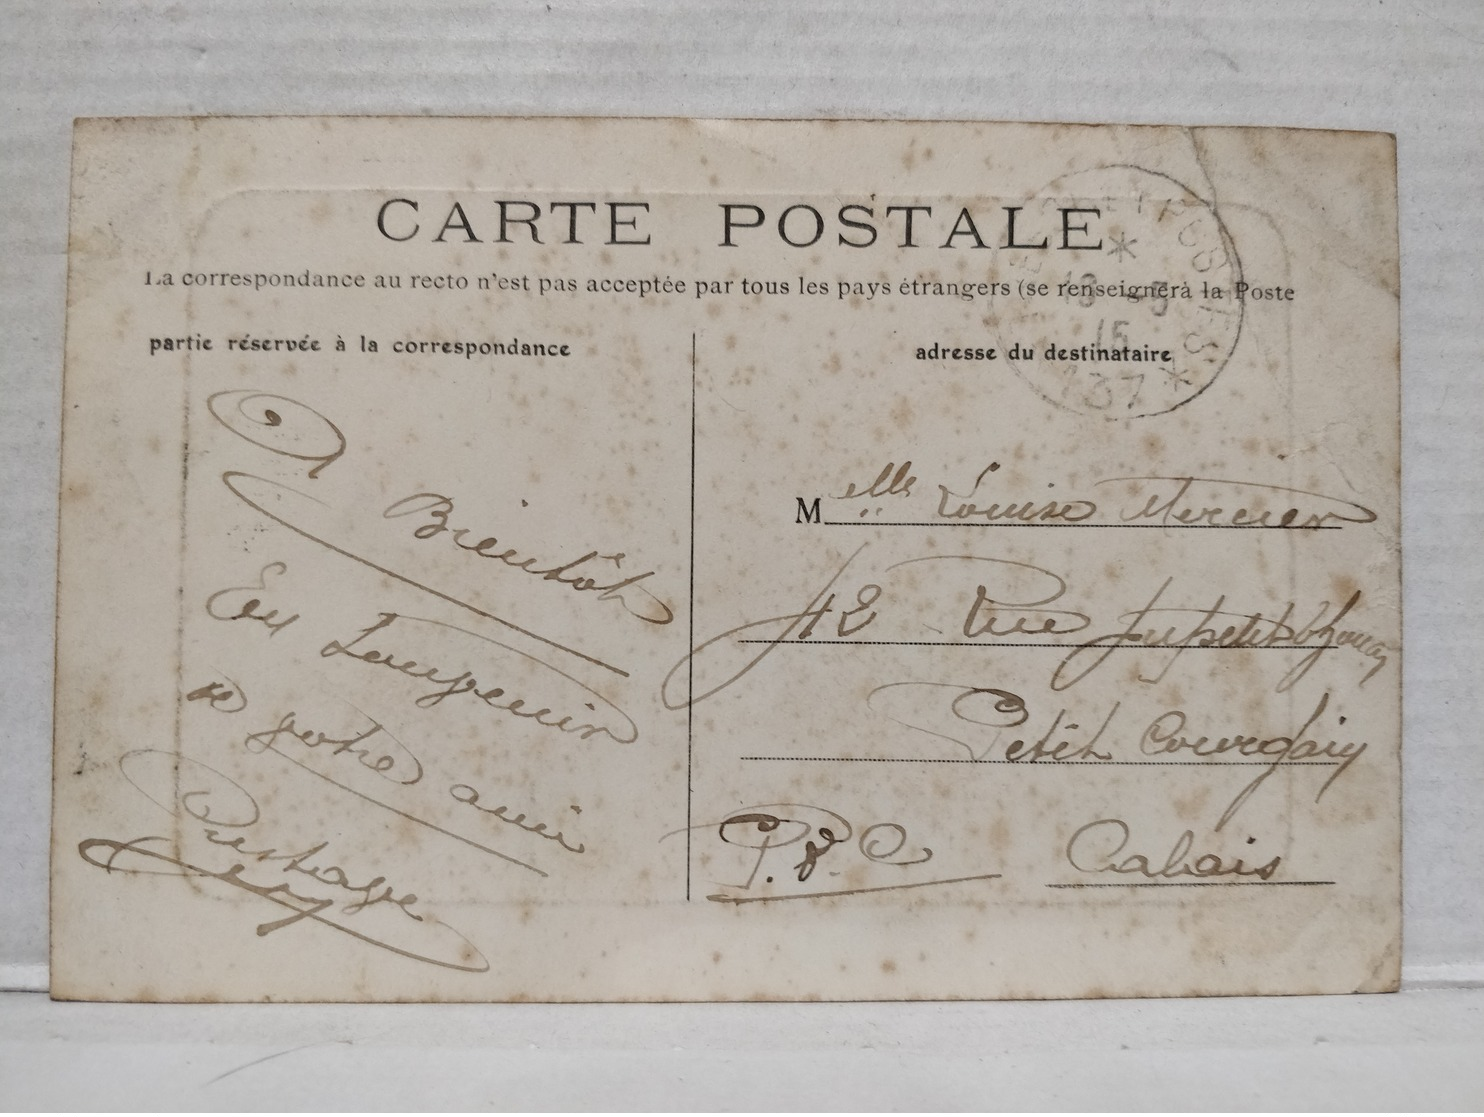 CARTE POSTALE
La correspondance au recto n'est pas acceptée par tous les pays étrangers (se renseigner à la Poste
partie réservée à la correspondance
adresse du destinataire
* 18 -5
15
137 *
A Bientôt
votre ami
M elle Louise Mercier
42 Rue
Petit Courgain
P.d.C Calais